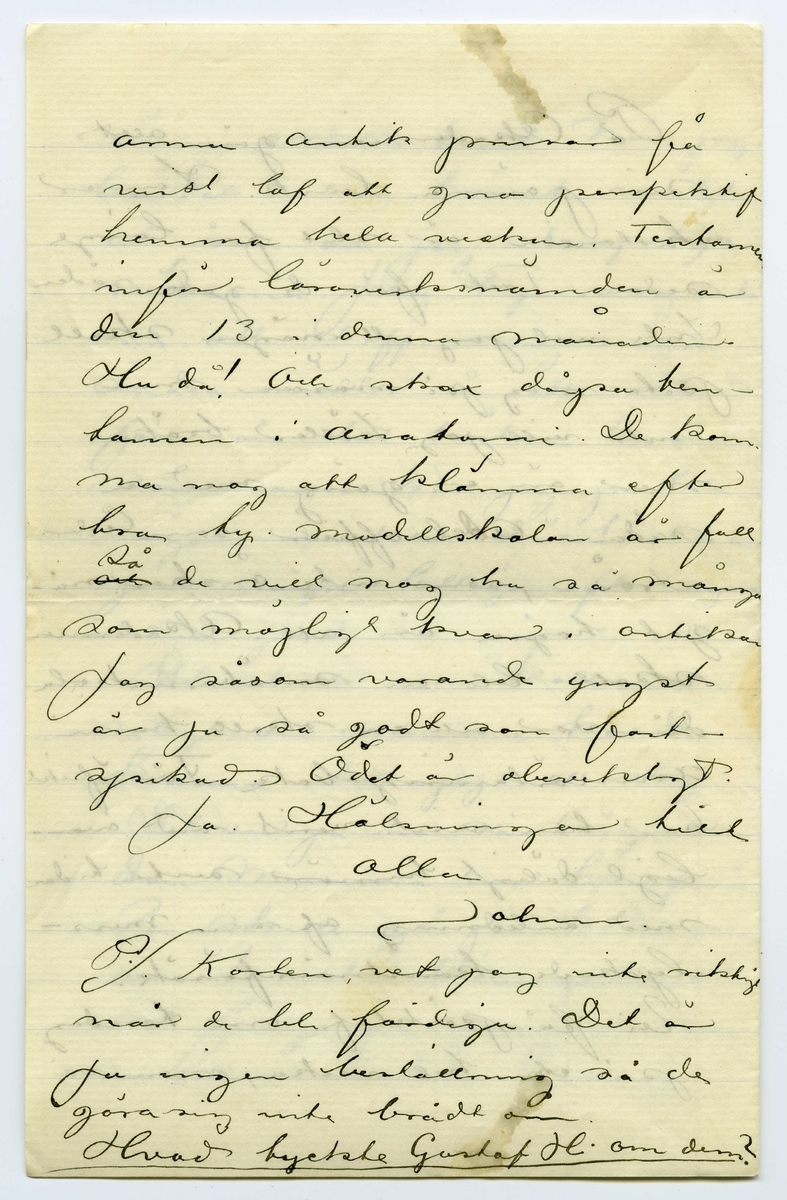 arma antik prinsar få
visst lof att gno perspektif
hemma hela veckan. Tentamen
inför läroverksnämnden är
den 13 i denna månaden.
Hu då! Och strax därpå ten-
tamen i anatomi. De kom-
ma nog att klämma efter
bra ty modellskolan är full
så de vill nog ha så många
som möjligt kvar i antiken
Jag såsom varande yngst
är ju så godt som fast-
spikad. Ödet är obevekligt.
Ja. Hälsningar till
alla
John.
P.S. Korten, vet jag inte riktigt
när de bli färdiga. Det är
ju ingen beställning så de
göra sig inte brådt om.
Hvad tyckte Gustaf H. om dem?